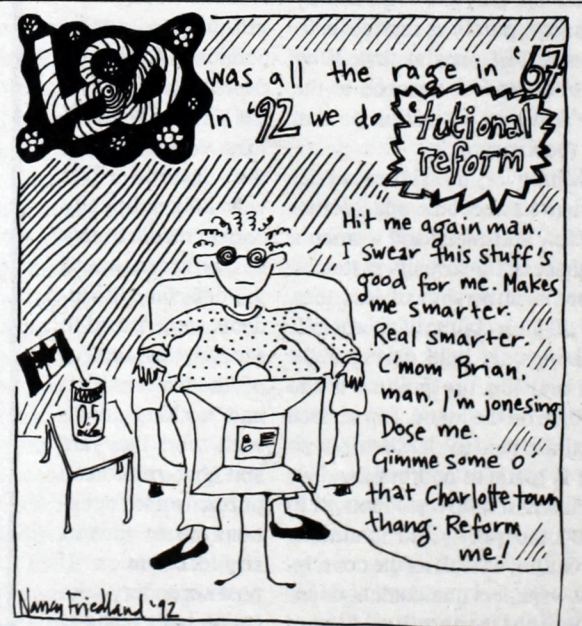 LSD was all the rage in '67.
In '92 we do 'tutional
reform
Hit me again man.
I swear this stuff's
good for me. Makes
me smarter.
Real smarter.
C'mon Brian,
man, I'm jonesing.
Dose me.
Gimme some o'
that Charlottetown
thang. Reform
me!
0.5
Nancy Friedland '92